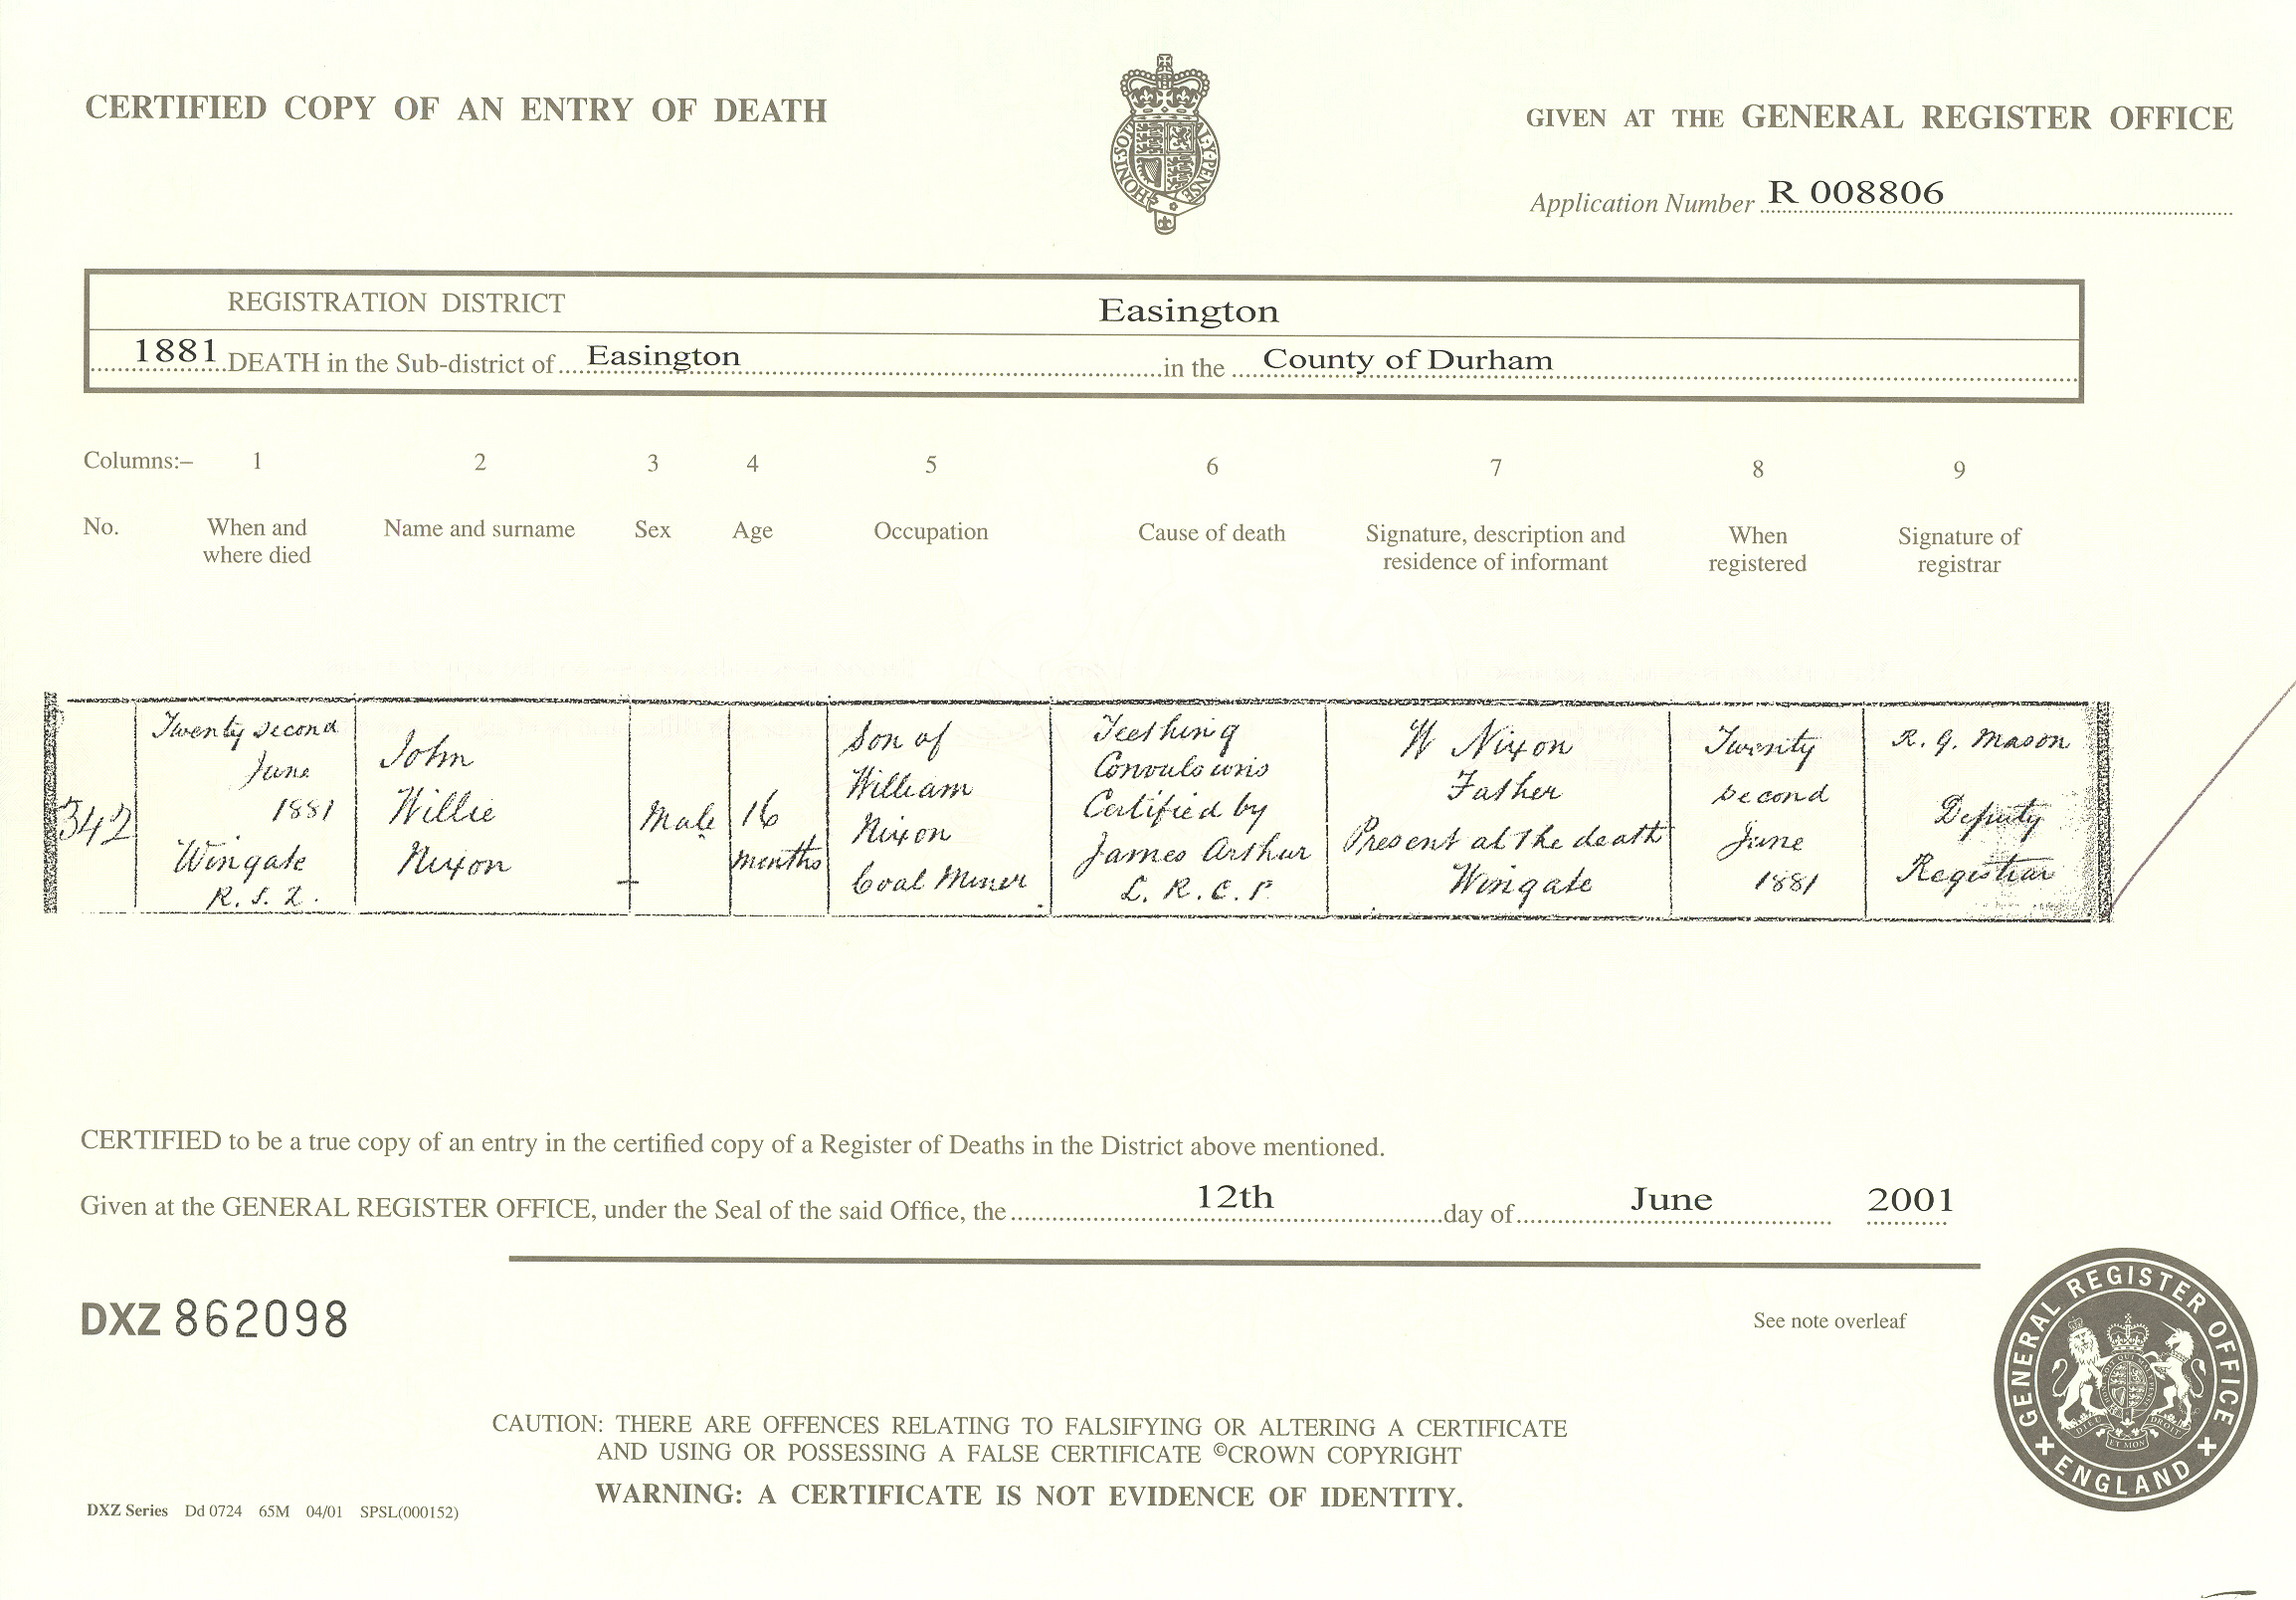 CERTIFIED COPY OF AN ENTRY OF DEATH
GIVEN AT THE GENERAL REGISTER OFFICE
HONI·SOIT AL·Y·PENSE
Application Number R 008806
REGISTRATION DISTRICT Easington
1881 DEATH in the Sub-district of Easington in the County of Durham
Columns:– 1 2 3 4 5 6 7 8 9
No.
When and
where died
Name and surname
Sex
Age
Occupation
Cause of death
Signature, description and
residence of informant
When
registered
Signature of
registrar
342
Twenty second
June
1881
Wingate
R.S.D.
John
Willie
Nixon
Male
16
months
Son of
William
Nixon
Coal Miner
Teething
Convulsions
Certified by
James Arthur
L.R.C.P.
W Nixon
Father
Present at the death
Wingate
Twenty
second
June
1881
R. G. Mason
Deputy
Registrar
CERTIFIED to be a true copy of an entry in the certified copy of a Register of Deaths in the District above mentioned.
Given at the GENERAL REGISTER OFFICE, under the Seal of the said Office, the 12th day of June 2001
DXZ 862098
See note overleaf
GENERAL REGISTER OFFICE
ENGLAND
CAUTION: THERE ARE OFFENCES RELATING TO FALSIFYING OR ALTERING A CERTIFICATE
AND USING OR POSSESSING A FALSE CERTIFICATE ©CROWN COPYRIGHT
WARNING: A CERTIFICATE IS NOT EVIDENCE OF IDENTITY.
DXZ Series Dd 0724 65M 04/01 SPSL(000152)